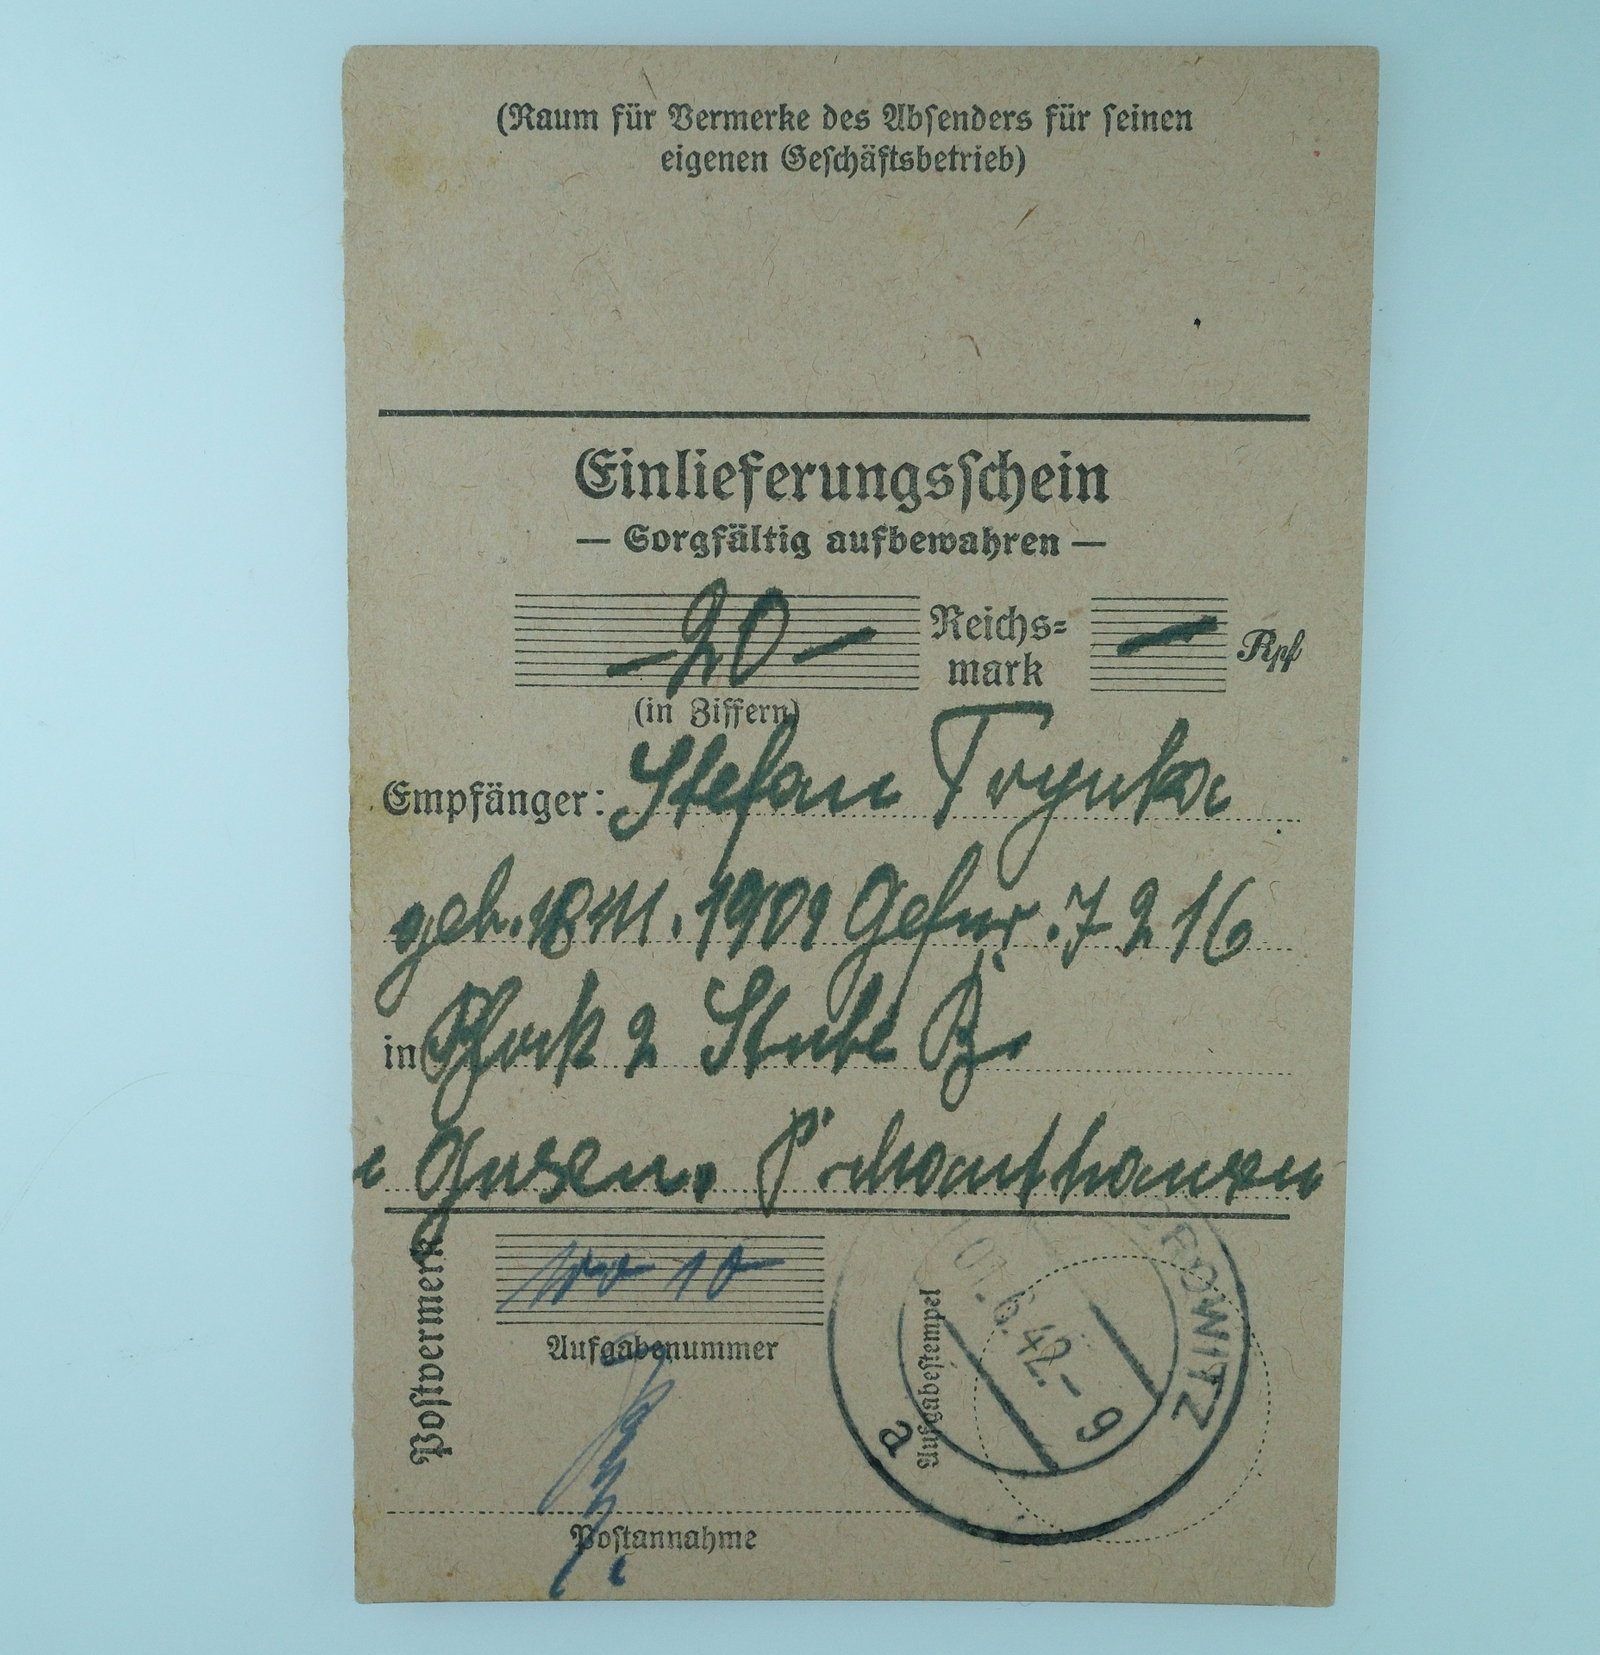 (Raum für Vermerke des Absenders für seinen
eigenen Geschäftsbetrieb)
Einlieferungsschein
— Sorgfältig aufbewahren —
—20— Reichs=
mark — Rpf
(in Ziffern)
Empfänger: Stefan Trynka
geb. 18 III. 1901 Gef nr. 7216
in Block 2 Stube B.
Gusen.
Postvermerk
10
Aufgabenummer
Aufgabestempel
01.6.42.-9
OWITZ
a
Postannahme